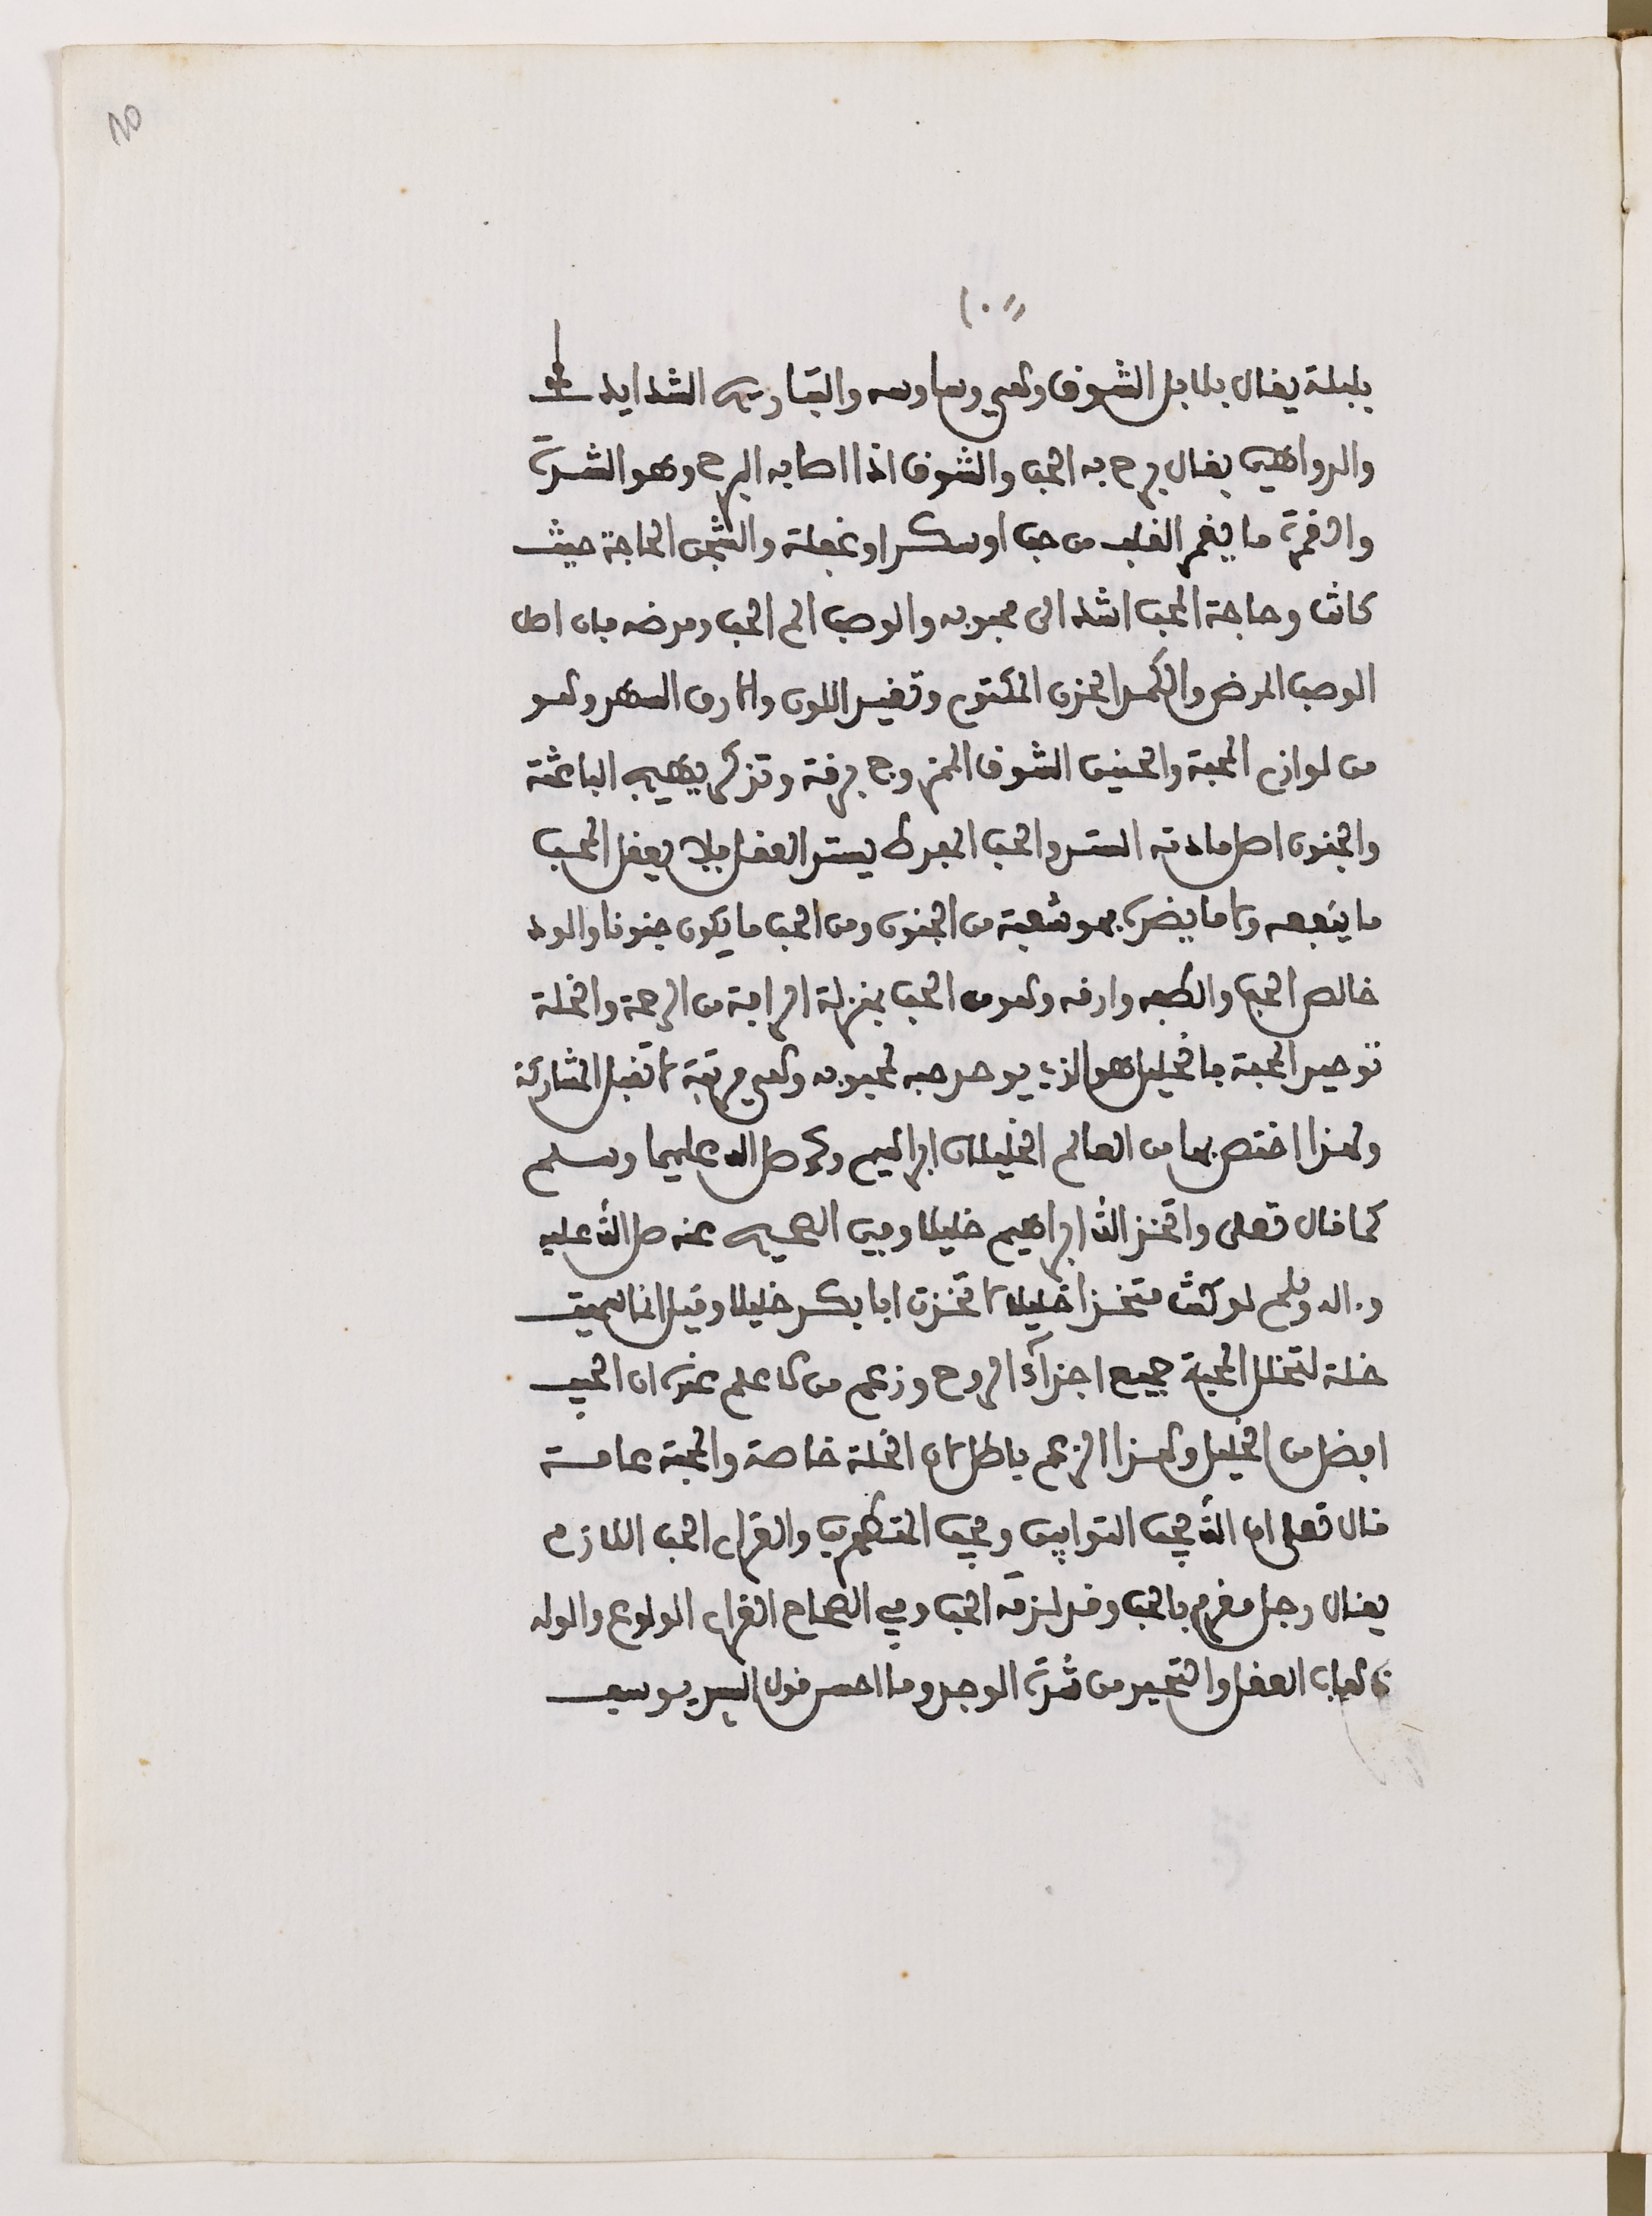 ١٠
بلبلة يقال بلابل الشوق وهي وساوسه والتباريح الشدايد
والدواهي يقال برح به الحب والشوق اذا اصابه البرح وهو الشدة
والغمرة ما يغمر القلب من حب او سكر او غفلة والشجن الحاجة حيث
كانت وحاجة المحب اشد الى محبوبه والوصب الم الحب ومرضه فان اصل
الوصب المرض والكمد الحزن المكتوم وتغير اللون والارق السهر وهو
من لوازم المحبة والحنين الشوق الممزوج برقة وتذكر يهيج الباعثة
والجنون اصل مادته الستر والحب المفرط يستر العقل فلا يعقل المحب
ما ينفعه ولا ما يضره فهو شعبة من الجنون ومن الحب ما يكون جنونا والود
خالص الحب والطفه وارقه وهو من الحب بمنزلة الرافة من الرحمة والخلة
توحيد المحبة فالخليل هو الذي يوحد حبه لمحبوبه وهي مرتبة لا تقبل المشاركة
ولهذا اختص بها من العالم الخليلان ابراهيم ومحمد صلى الله عليهما وسلم
كما قال تعلى واتخذ الله ابراهيم خليلا وفي الصحيح عنه صلى الله عليه
وءاله وسلم لو كنت متخذا خليلا لاتخذت ابا بكر خليلا وقيل انما سميت
خلة لتخلل المحبة جميع اجزآء الروح وزعم من لا علم عنده ان الحبيب
افضل من الخليل وهذا الزعم باطل لان الخلة خاصة والمحبة عامة
قال تعلى ان الله يحب التوابين ويحب المتطهرين والغرام الحب اللازم
يقال رجل مغرم بالحب وقد لزمه الحب وفي الصحاح الغرام الولوع والوله
ذهاب العقل والتحير من شدة الوجد وما احسن قول السيد يوسف